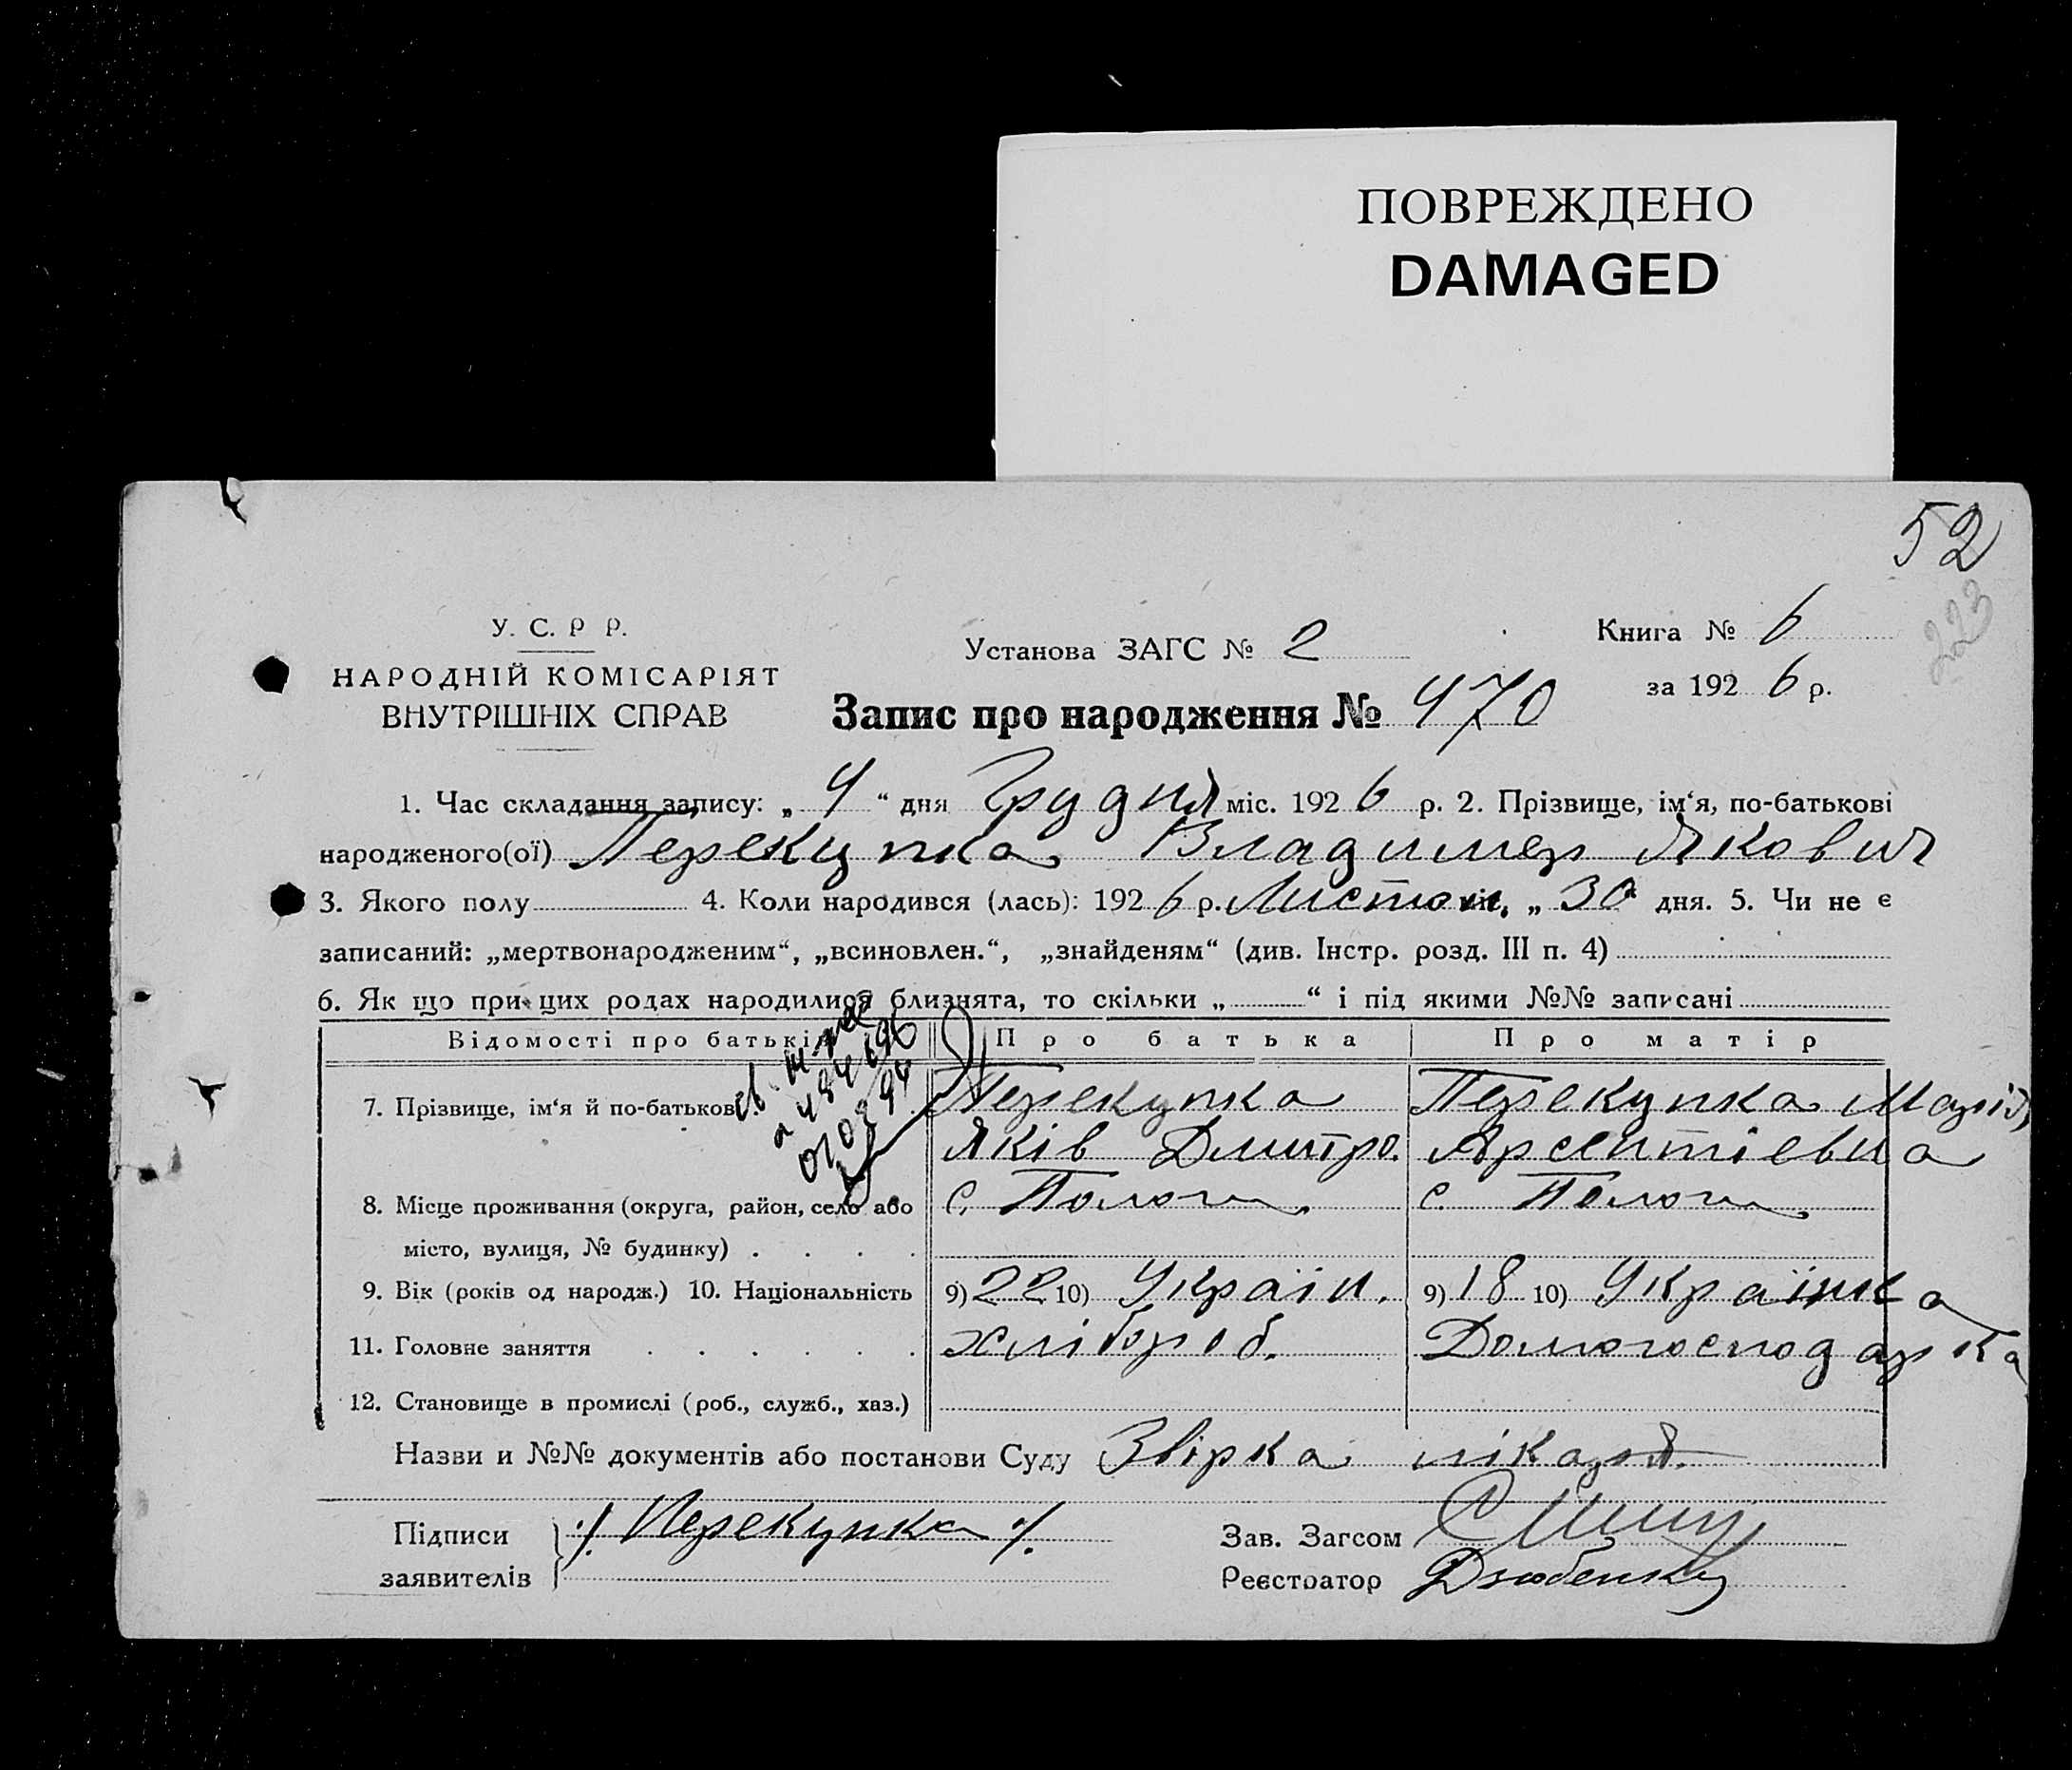 ПОВРЕЖДЕНО
DAMAGED
52
223
У. С. Р Р.
НАРОДНІЙ КОМІСАРІЯТ
ВНУТРІШНІХ СПРАВ
Установа ЗАГС № 2
Книга № 6
за 1926 р.
Запис про народження № 470
1. Час складання запису: „ 4 “ дня Грудня міс. 1926 р. 2. Прізвище, ім‘я, по-батькові
народженого(ої) Перекупка Владимер Якович
3. Якого полу 4. Коли народився (лась): 1926 р. Листоп. міс. „ 30 “ дня. 5. Чи не є
записаний: „мертвонародженим“, „всиновлен.“, „знайденям“ (див. Інстр. розд. III п. 4)
6. Як що при цих родах народилися близнята, то скільки „ “ і під якими №№ записані
Відомості про батьків Про батька Про матір
7. Прізвище, ім‘я й по-батькові Перекупка Перекупка Марія
Яків Дмитро. Арсентіевна
8. Місце проживання (округа, район, село або с. Пологи с. Пологи
місто, вулиця, № будинку)
9. Вік (років од народж.) 10. Національність 9) 22 10) Україн. 9) 18 10) Українка
11. Головне заняття хлібороб. Домогосподарка
12. Становище в промислі (роб., служб., хаз.)
Назви и №№ документів або постанови Суду Звірка лікаря
Підписи ./. Перекупка ./. Зав. Загсом
заявителів Реєстратор